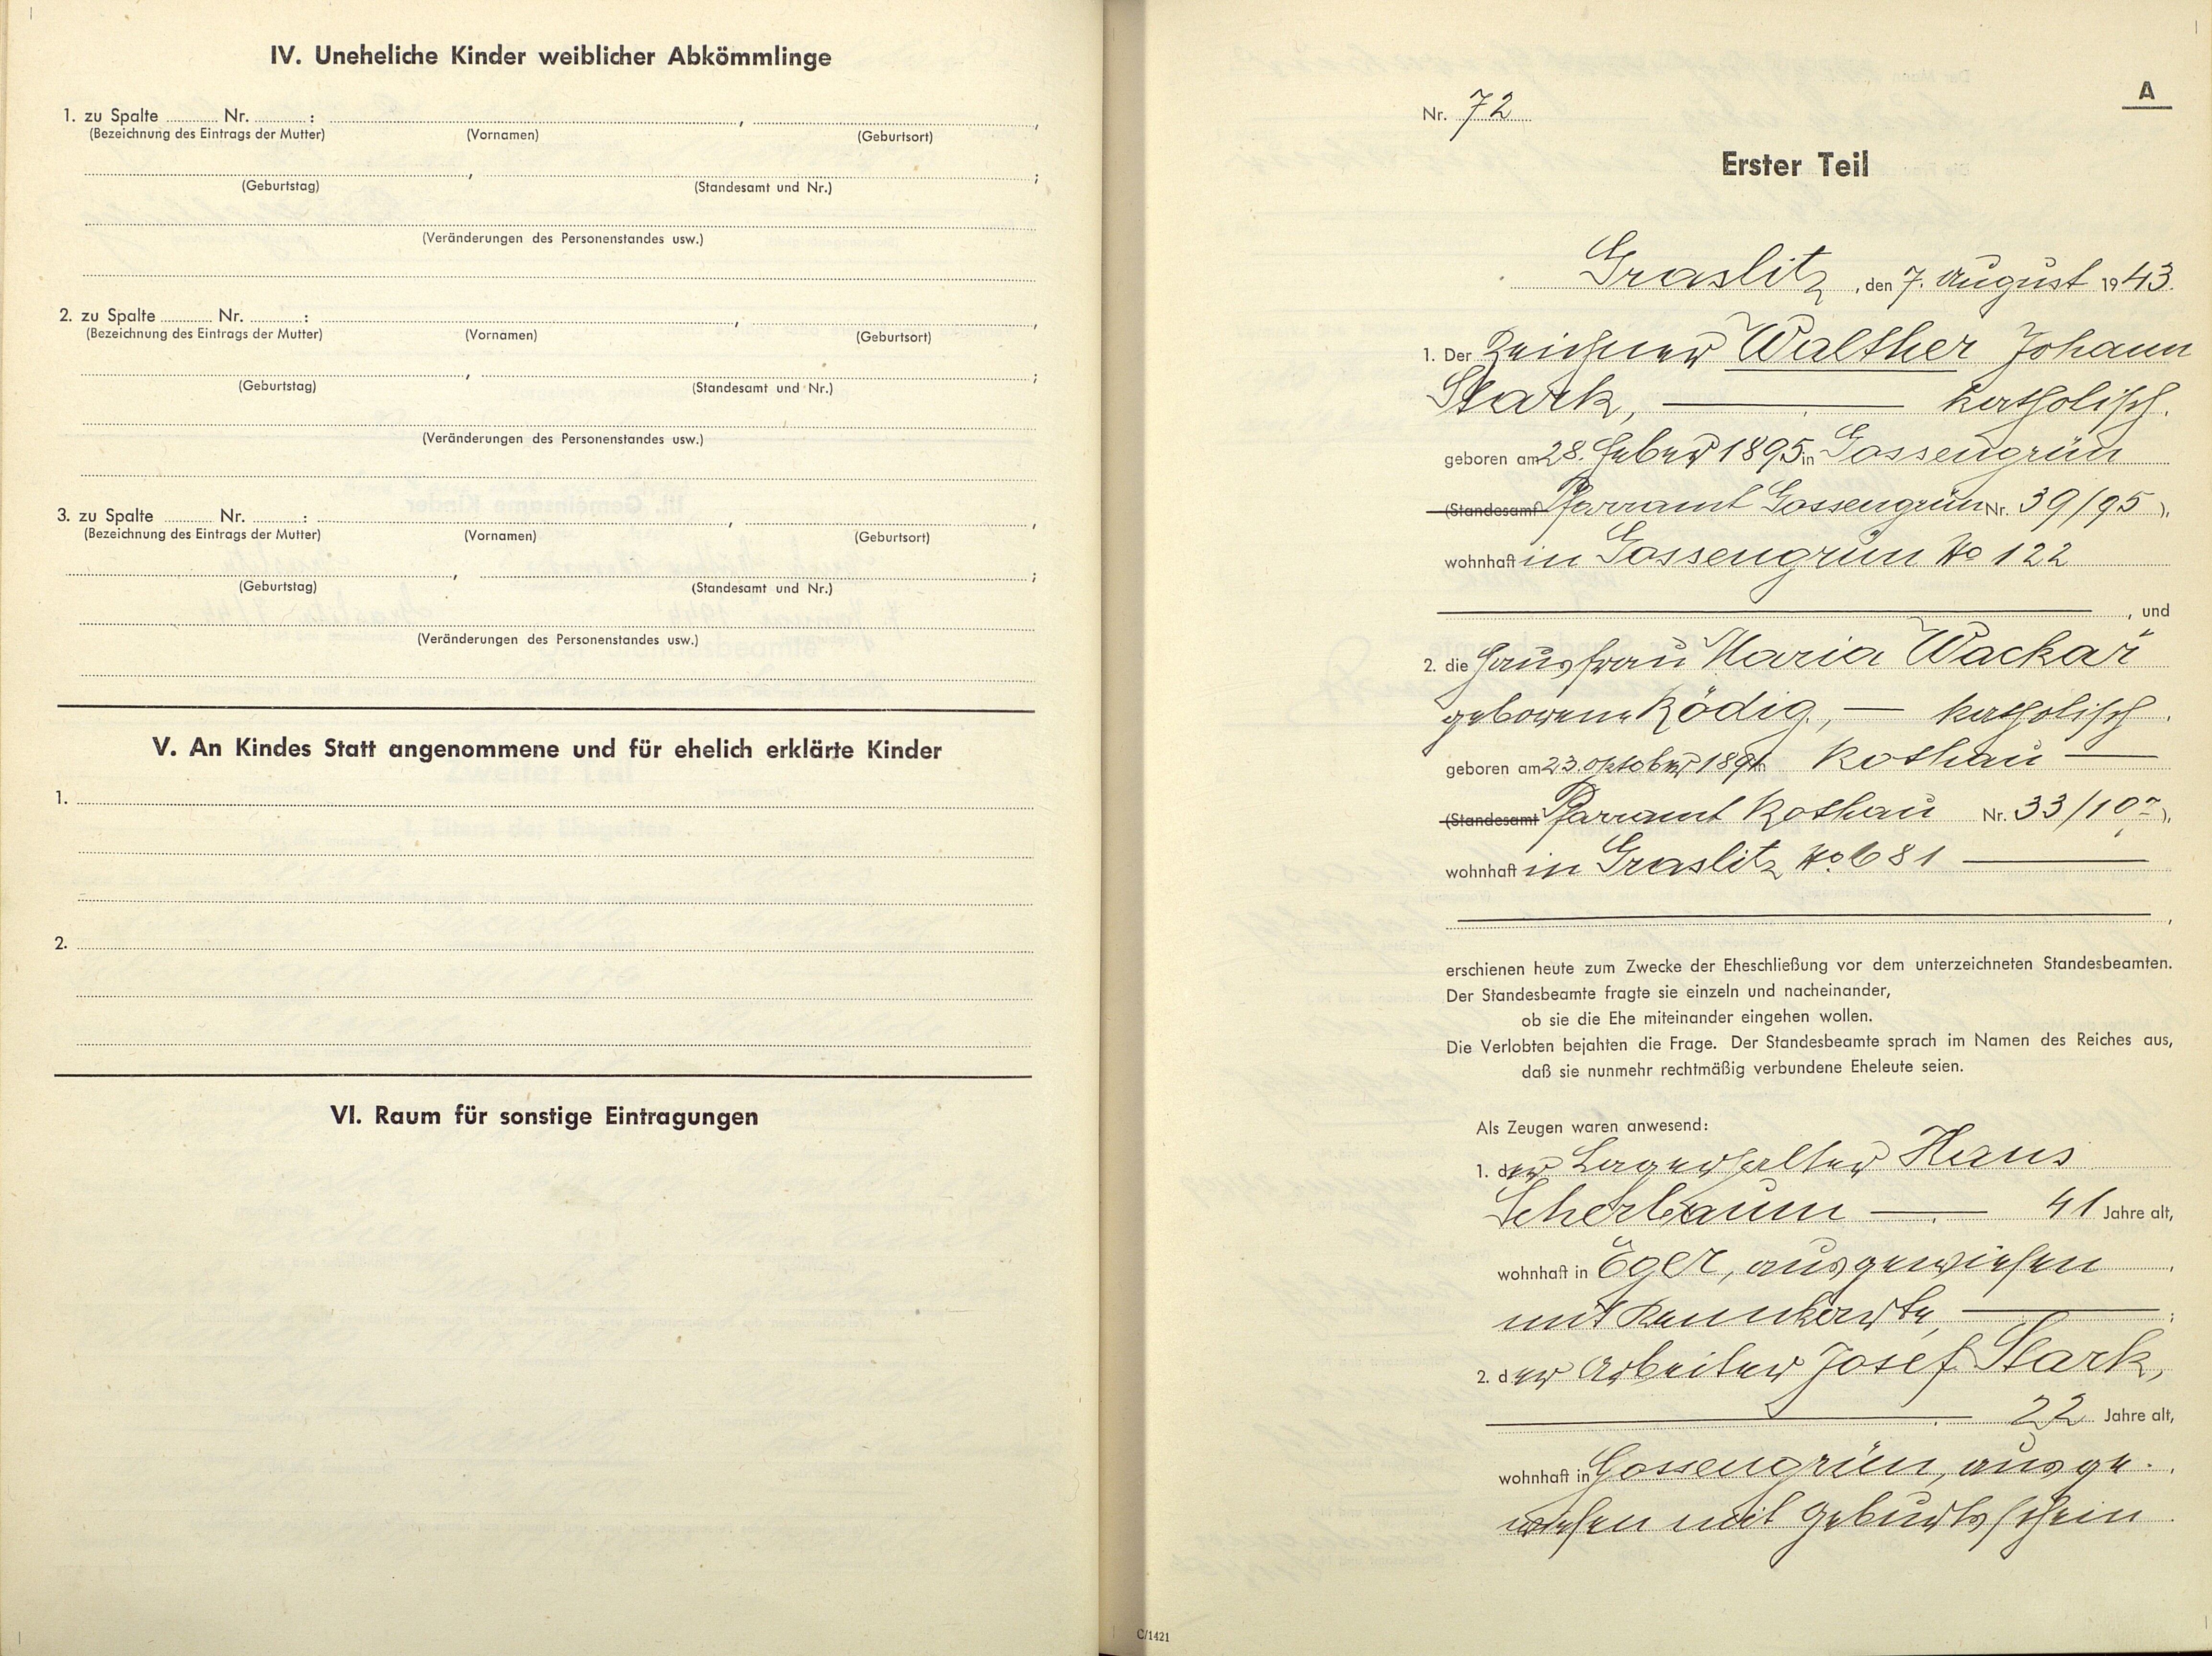 IV. Uneheliche Kinder weiblicher Abkömmlinge
1. zu Spalte ......... Nr. ......... : , ,
(Bezeichnung des Eintrags der Mutter) (Vornamen) (Geburtsort)
, ;
(Geburtstag) (Standesamt und Nr.)
(Veränderungen des Personenstandes usw.)
2. zu Spalte ......... Nr. ......... : , ,
(Bezeichnung des Eintrags der Mutter) (Vornamen) (Geburtsort)
, ;
(Geburtstag) (Standesamt und Nr.)
(Veränderungen des Personenstandes usw.)
3. zu Spalte ......... Nr. ......... : , ,
(Bezeichnung des Eintrags der Mutter) (Vornamen) (Geburtsort)
, ;
(Geburtstag) (Standesamt und Nr.)
(Veränderungen des Personenstandes usw.)
V. An Kindes Statt angenommene und für ehelich erklärte Kinder
1.
2.
VI. Raum für sonstige Eintragungen
A
Nr. 72
Erster Teil
Graslitz, den 7. August 1943.
1. Der Zeichner Walther Johann
Stark, — katholisch.
geboren am 28. Feber 1895 in Gossengrün
(Standesamt Pfarramt Gossengrün Nr. 39/95),
wohnhaft in Gossengrün No 122
, und
2. die Hausfrau Maria Wackař
geborene Rödig, — katholisch.
geboren am 23. Oktober 1891 in Rothau —
(Standesamt Pfarramt Rothau Nr. 33/10),
wohnhaft in Graslitz No. 681 —
,
erschienen heute zum Zwecke der Eheschließung vor dem unterzeichneten Standesbeamten.
Der Standesbeamte fragte sie einzeln und nacheinander,
ob sie die Ehe miteinander eingehen wollen.
Die Verlobten bejahten die Frage. Der Standesbeamte sprach im Namen des Reiches aus,
daß sie nunmehr rechtmäßig verbundene Eheleute seien.
Als Zeugen waren anwesend:
1. der Lagerhalter Hans
Scherbaum — 41 Jahre alt,
wohnhaft in Eger, ausgewiesen
mit Kennkarte, — ;
2. der Arbeiter Josef Stark,
— 22 Jahre alt,
wohnhaft in Gossengrün, ausge-
wiesen mit Geburtsschein.
C/1421